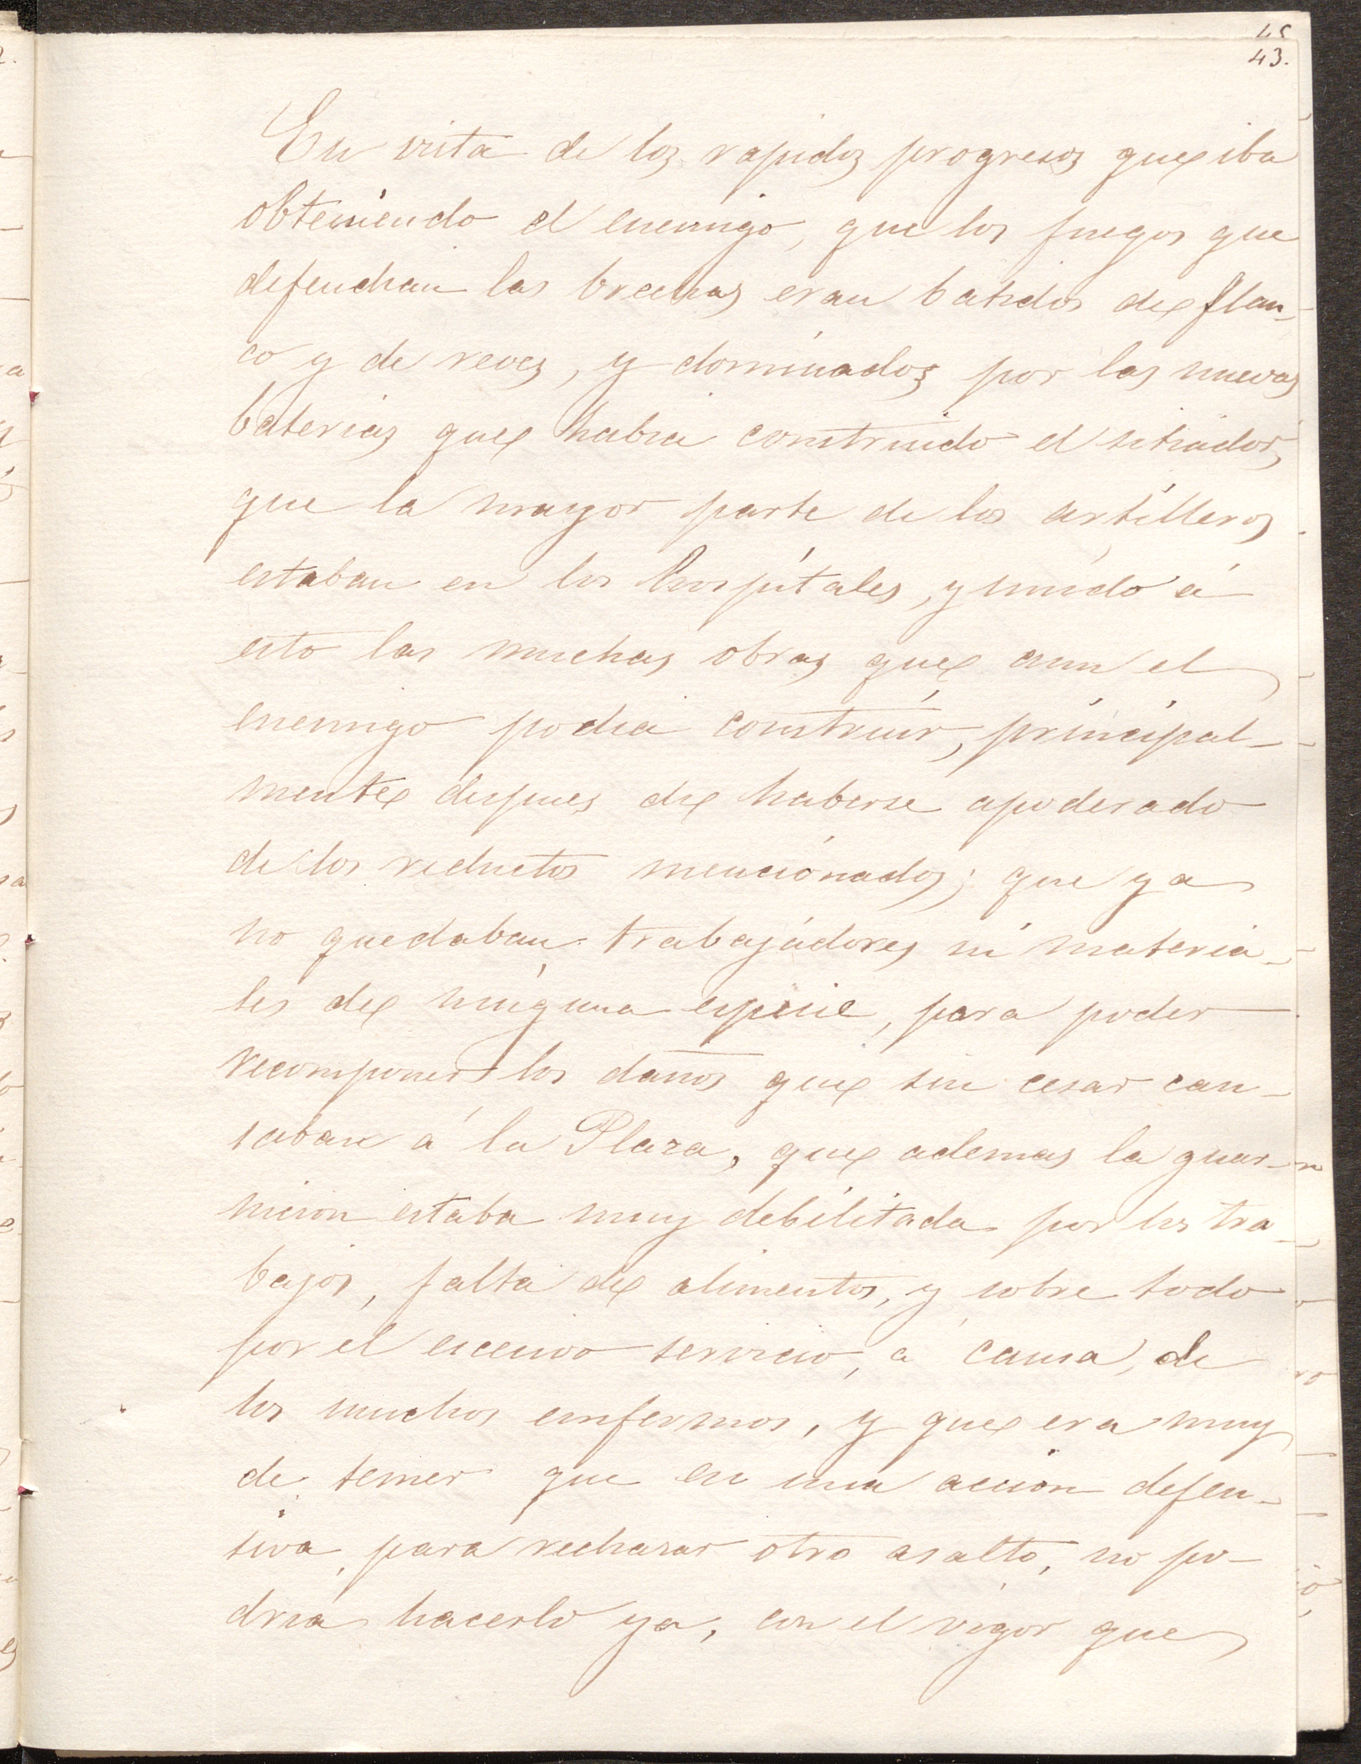 45
43.
En vista de los rapidos progresos que iba
obteniendo el enemigo, que los fuegos que
defendian las brechas eran batidos de flan-
co y de reves, y dominados por las nuevas
baterias que habia construido el sitiador,
que la mayor parte de los artilleros
estaban en los hospitales, y unido á
esto las muchas obras que aun el
enemigo podia construir, principal-
mente despues de haberse apoderado
de los reductos mencionados; que ya
no quedaban trabajadores ni materia-
les de ninguna especie, para poder
recomponer los daños que sin cesar cau-
saban á la Plaza, que ademas la guar-
nicion estaba muy debilitada por los tra-
bajos, falta de alimentos, y sobre todo
por el escesivo servicio, á causa, de
los muchos emfermos, y que era muy
de temer que en una accion defen-
siva, para rechazar otro asalto, no po-
dria hacerlo ya, con el vigor que